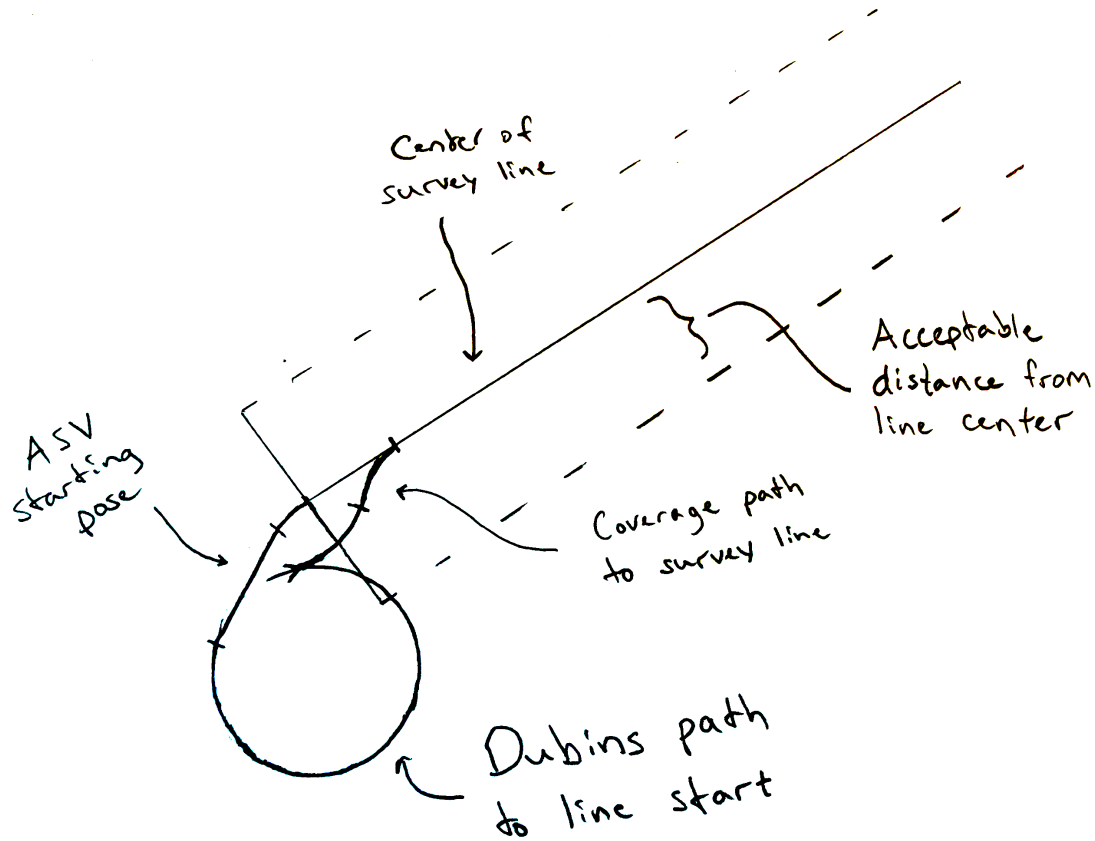 Center of
survey line
Acceptable
distance from
line center
ASV
starting
pose
Coverage path
to survey line
Dubins path
to line start